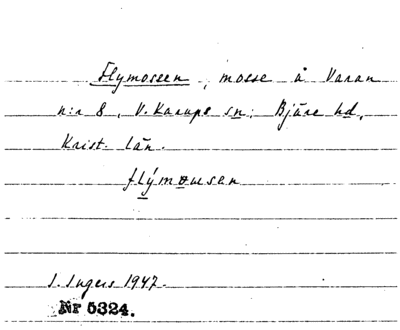 Flymossen, mosse å Varan
n:r 8, V. Karups sn: Bjäre hd,
Krist. län.
flýmousen
I. Ingers 1947.
Nr 5324.